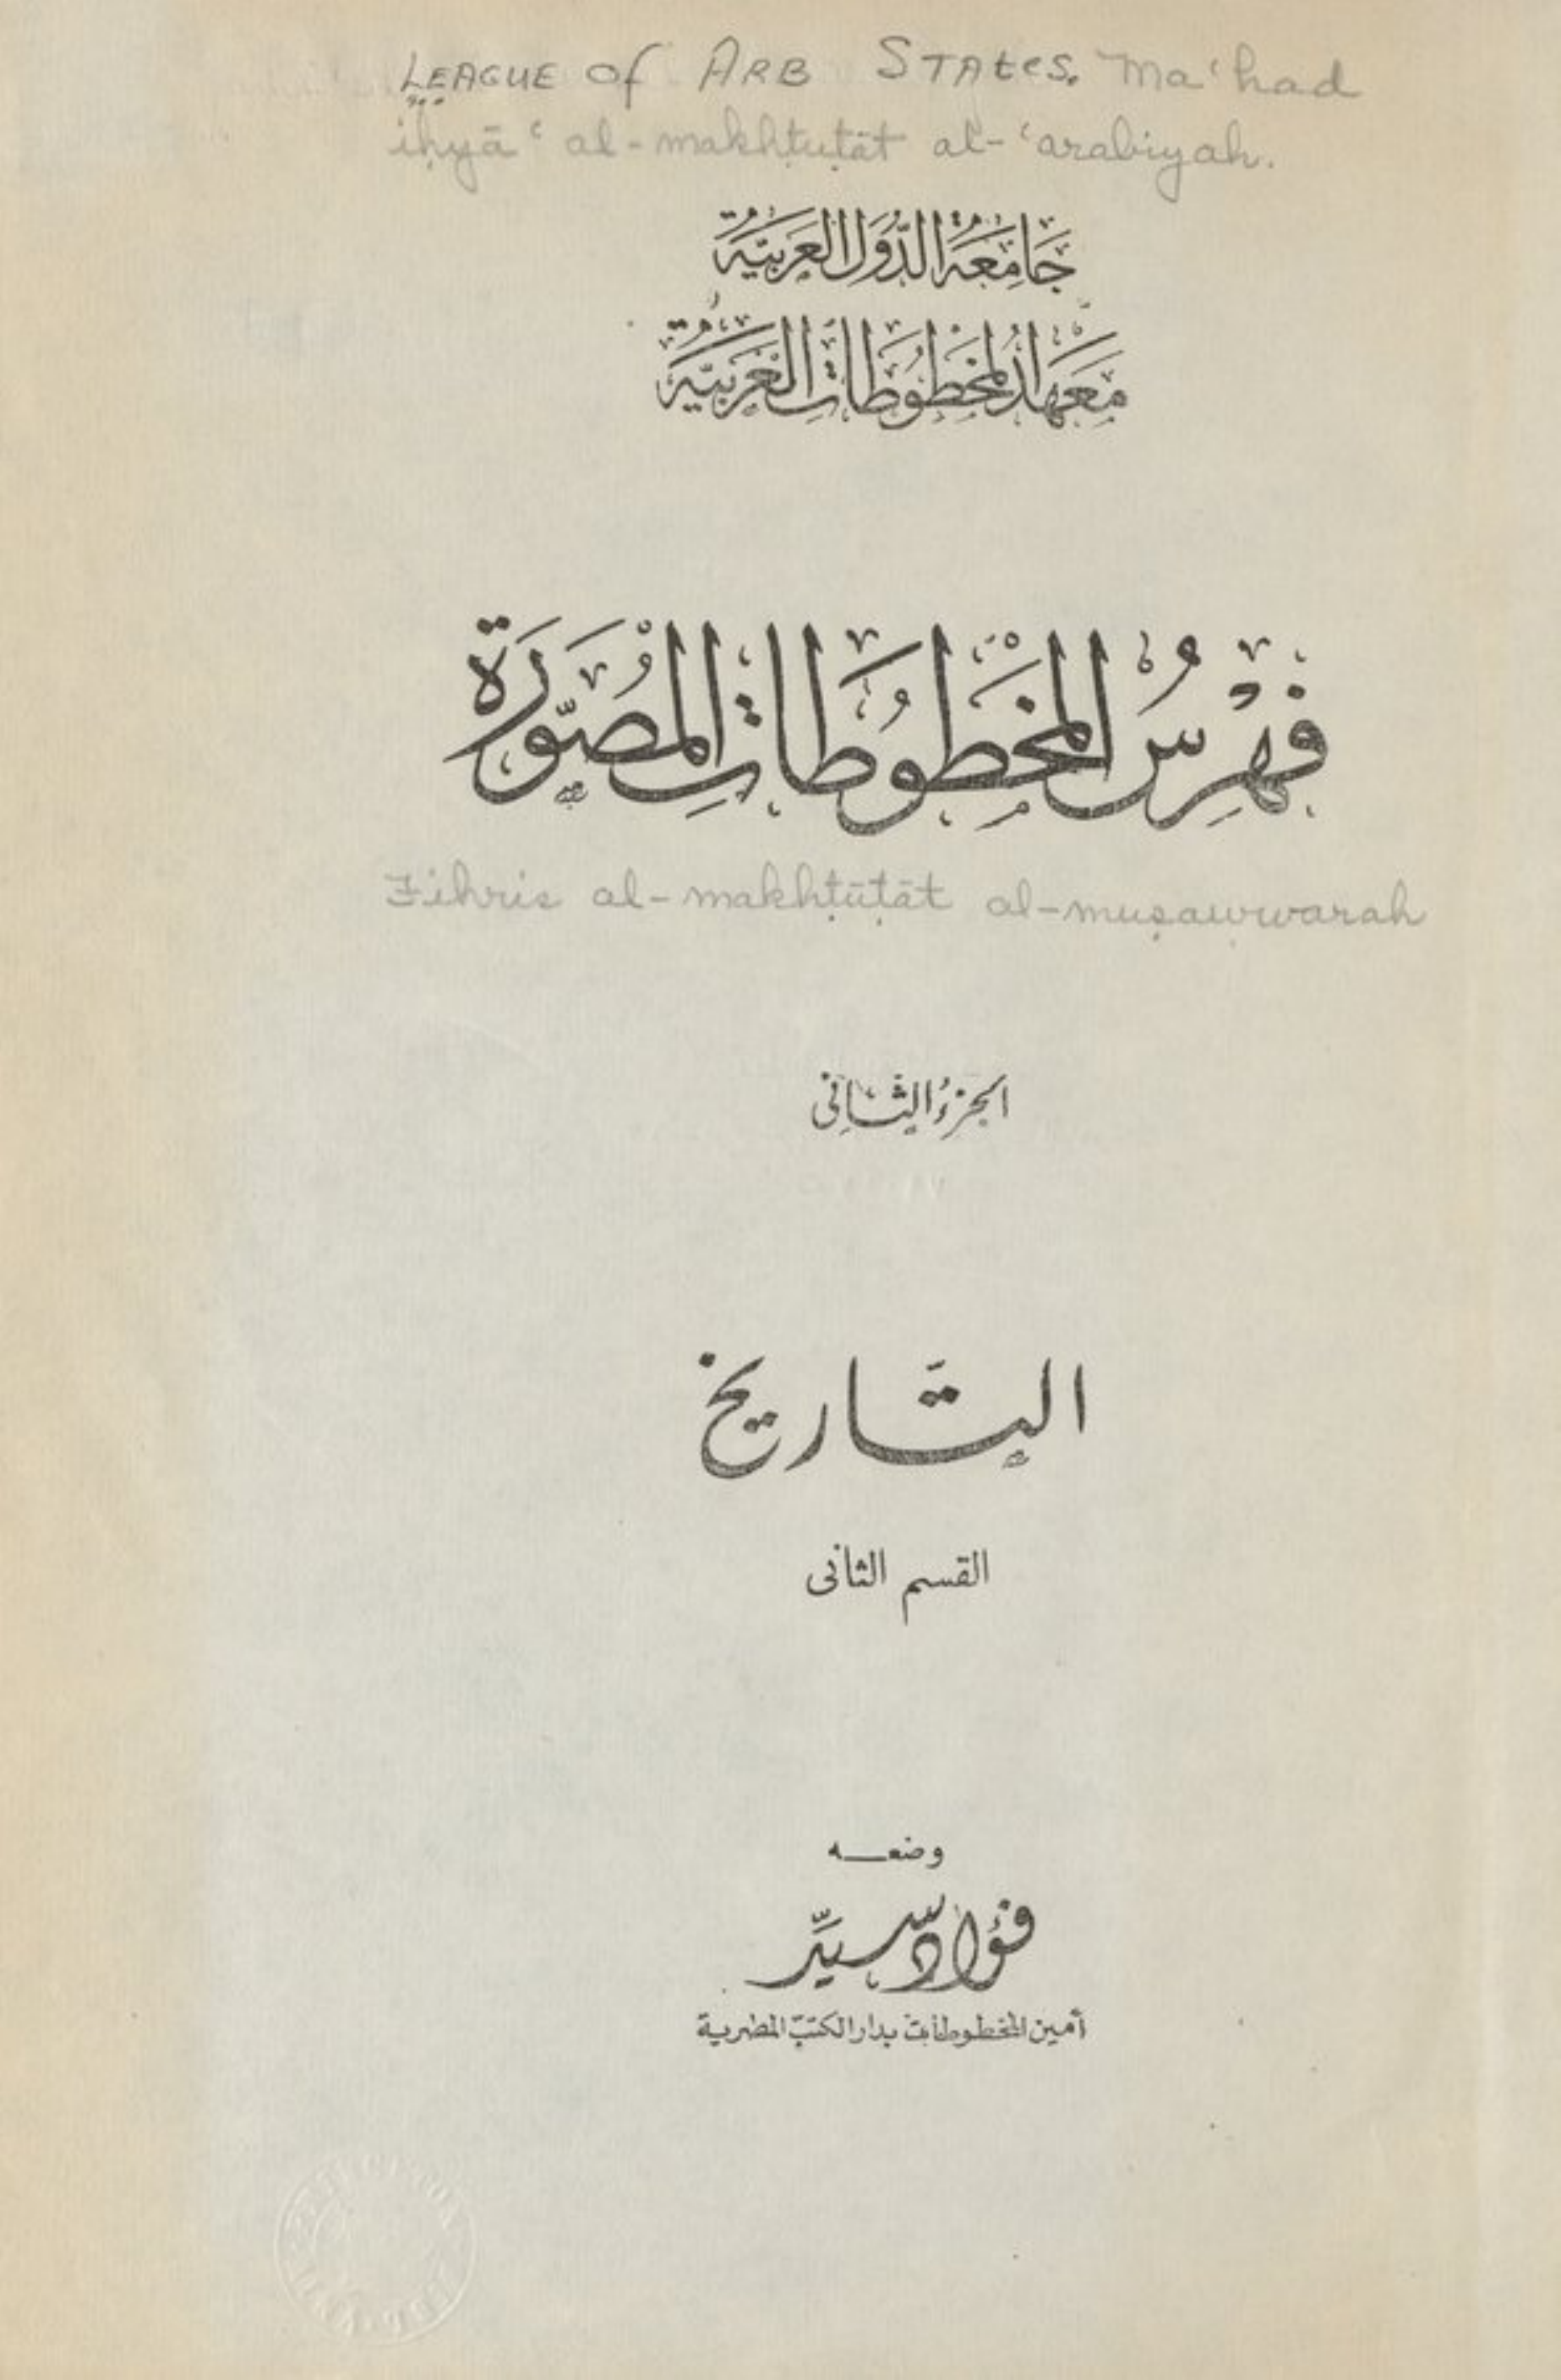 LEAGUE of ARB STATES. Ma'had
iḥyā' al-makhṭuṭāt al-'arabiyah.
جَامِعَة الدّوَل العَرَبيّة
مَعْهَد المَخْطُوطَاتِ العَرَبيّة
فِهْرِسُ المَخْطُوطَاتِ المُصَوّرَة
Fihris al-makhṭūṭāt al-muṣawwarah
الجزءُ الثّانِى
التّاريخ
القسم الثانى
وضعـــه
فؤاد سيّد
أمين المخطوطات بدار الكتب المصرية